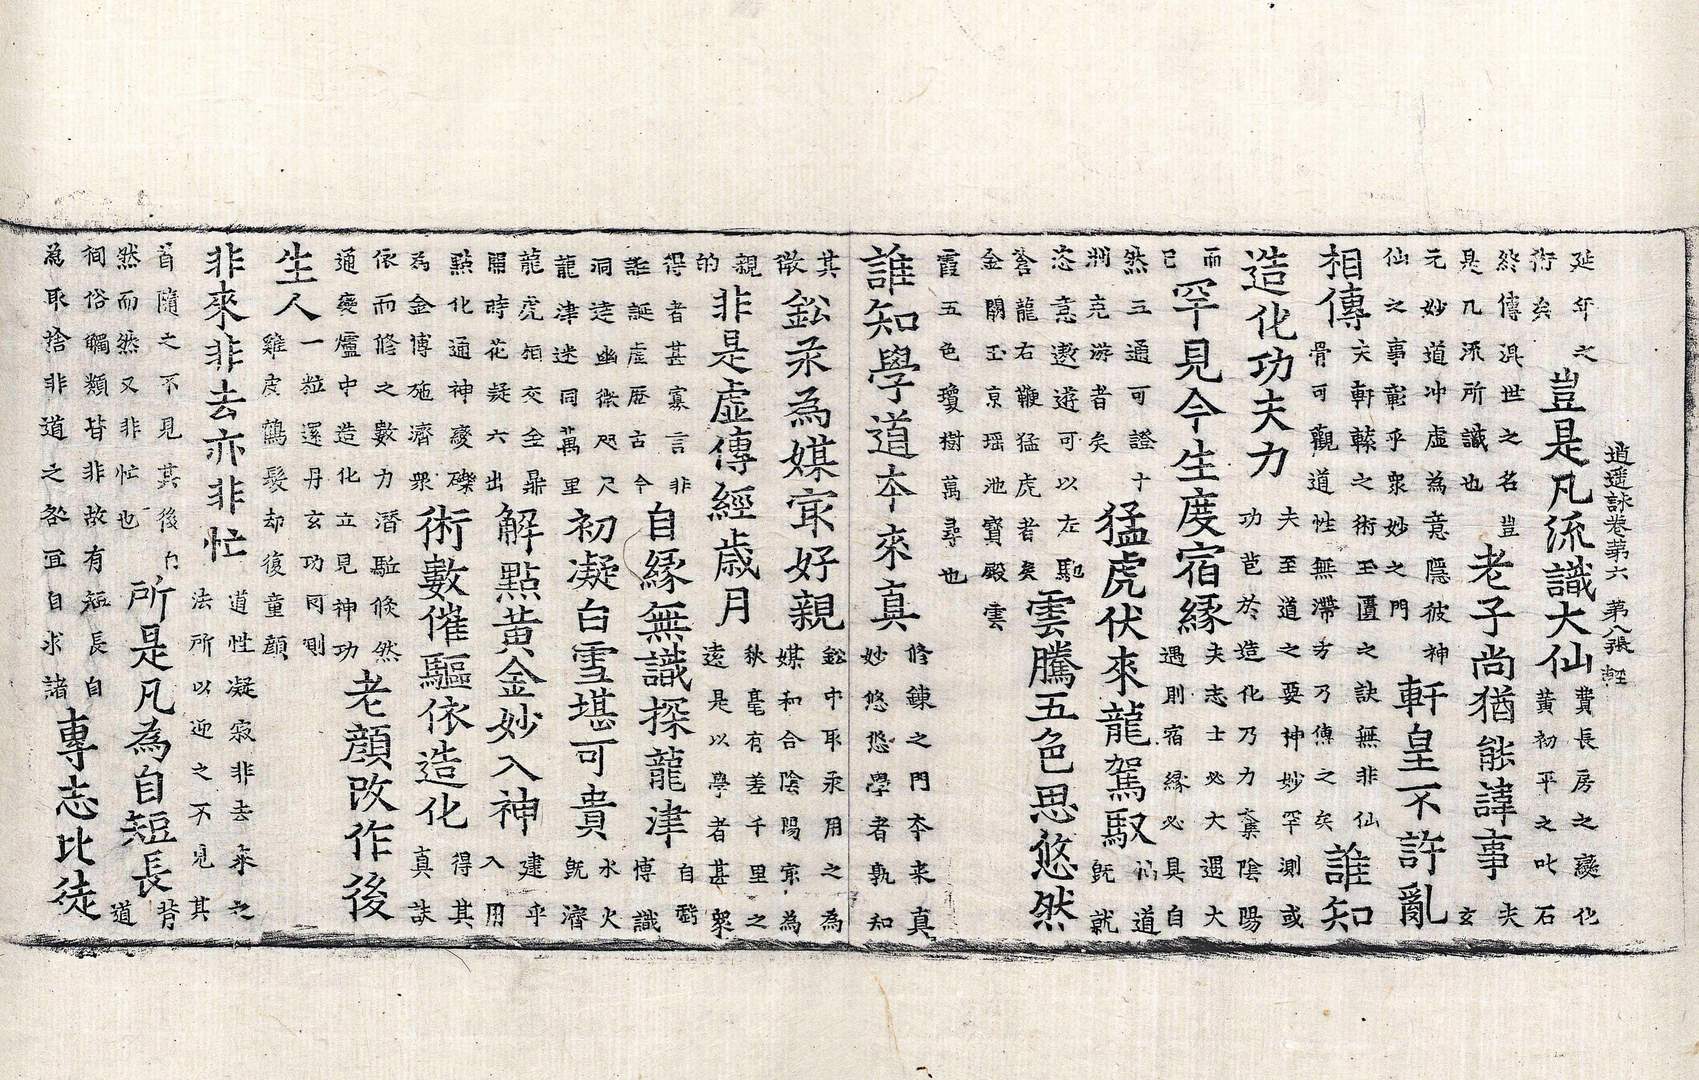 逍遥詠卷第六　第八張　輕
延年之術矣豈是凡流識大仙費長房之變化黃初平之叱石
終傳洪世之名豈是凡流所識也老子尚猶能諱事夫玄
元妙道冲虛為意隱彼神仙之事彰乎衆妙之門軒皇不許亂
相傳夫軒轅之術至匱之訣無非仙骨可觀道性無滯方乃傳之矣誰知
造化功夫力夫至道之要神妙罕測或功苞於造化乃力棄陰陽
而已罕見今生度宿緣夫志士必大遇大遇則宿緣必具自
然三通可證十洲克游者矣猛虎伏來龍駕馭仙道既就
恣意遨遊可以左馳蒼龍右鞭猛虎者矣雲騰五色思悠然
金闕玉京瑶池寳殿雲霞五色瓊樹萬尋也
誰知學道本來真修鍊之門本来真妙悠悠學者孰知
其微鈆汞為媒㝡好親鈆中取汞用之為媒和合陰陽㝡為
親的非是虛傳經歲月秋毫有差千里之遠是以學者甚衆
得者甚寡言非誑誕虛歷古今自緣無識探龍津自翳博識
洞達幽微咫尺龍津迷同萬里初凝白雪堪可貴水火既濟
龍虎相交金鼎開時花凝六出解點黃金妙入神建乎入用
點化通神變礫為金博施濟衆術數催驅依造化得其真訣
依而修之數力潛駈倏然通變爐中造化立見神功老顏改作後
生人一粒還丹玄功罔測雞皮鶴髮却復童顏
非來非去亦非忙道性凝寂非去來之法所以迎之不見其
首隨之不見其後自然而然又非忙也所是凡為自短長背道
徇俗觸類皆非故有短長自為取捨非道之咎宜自求諸專志比徒